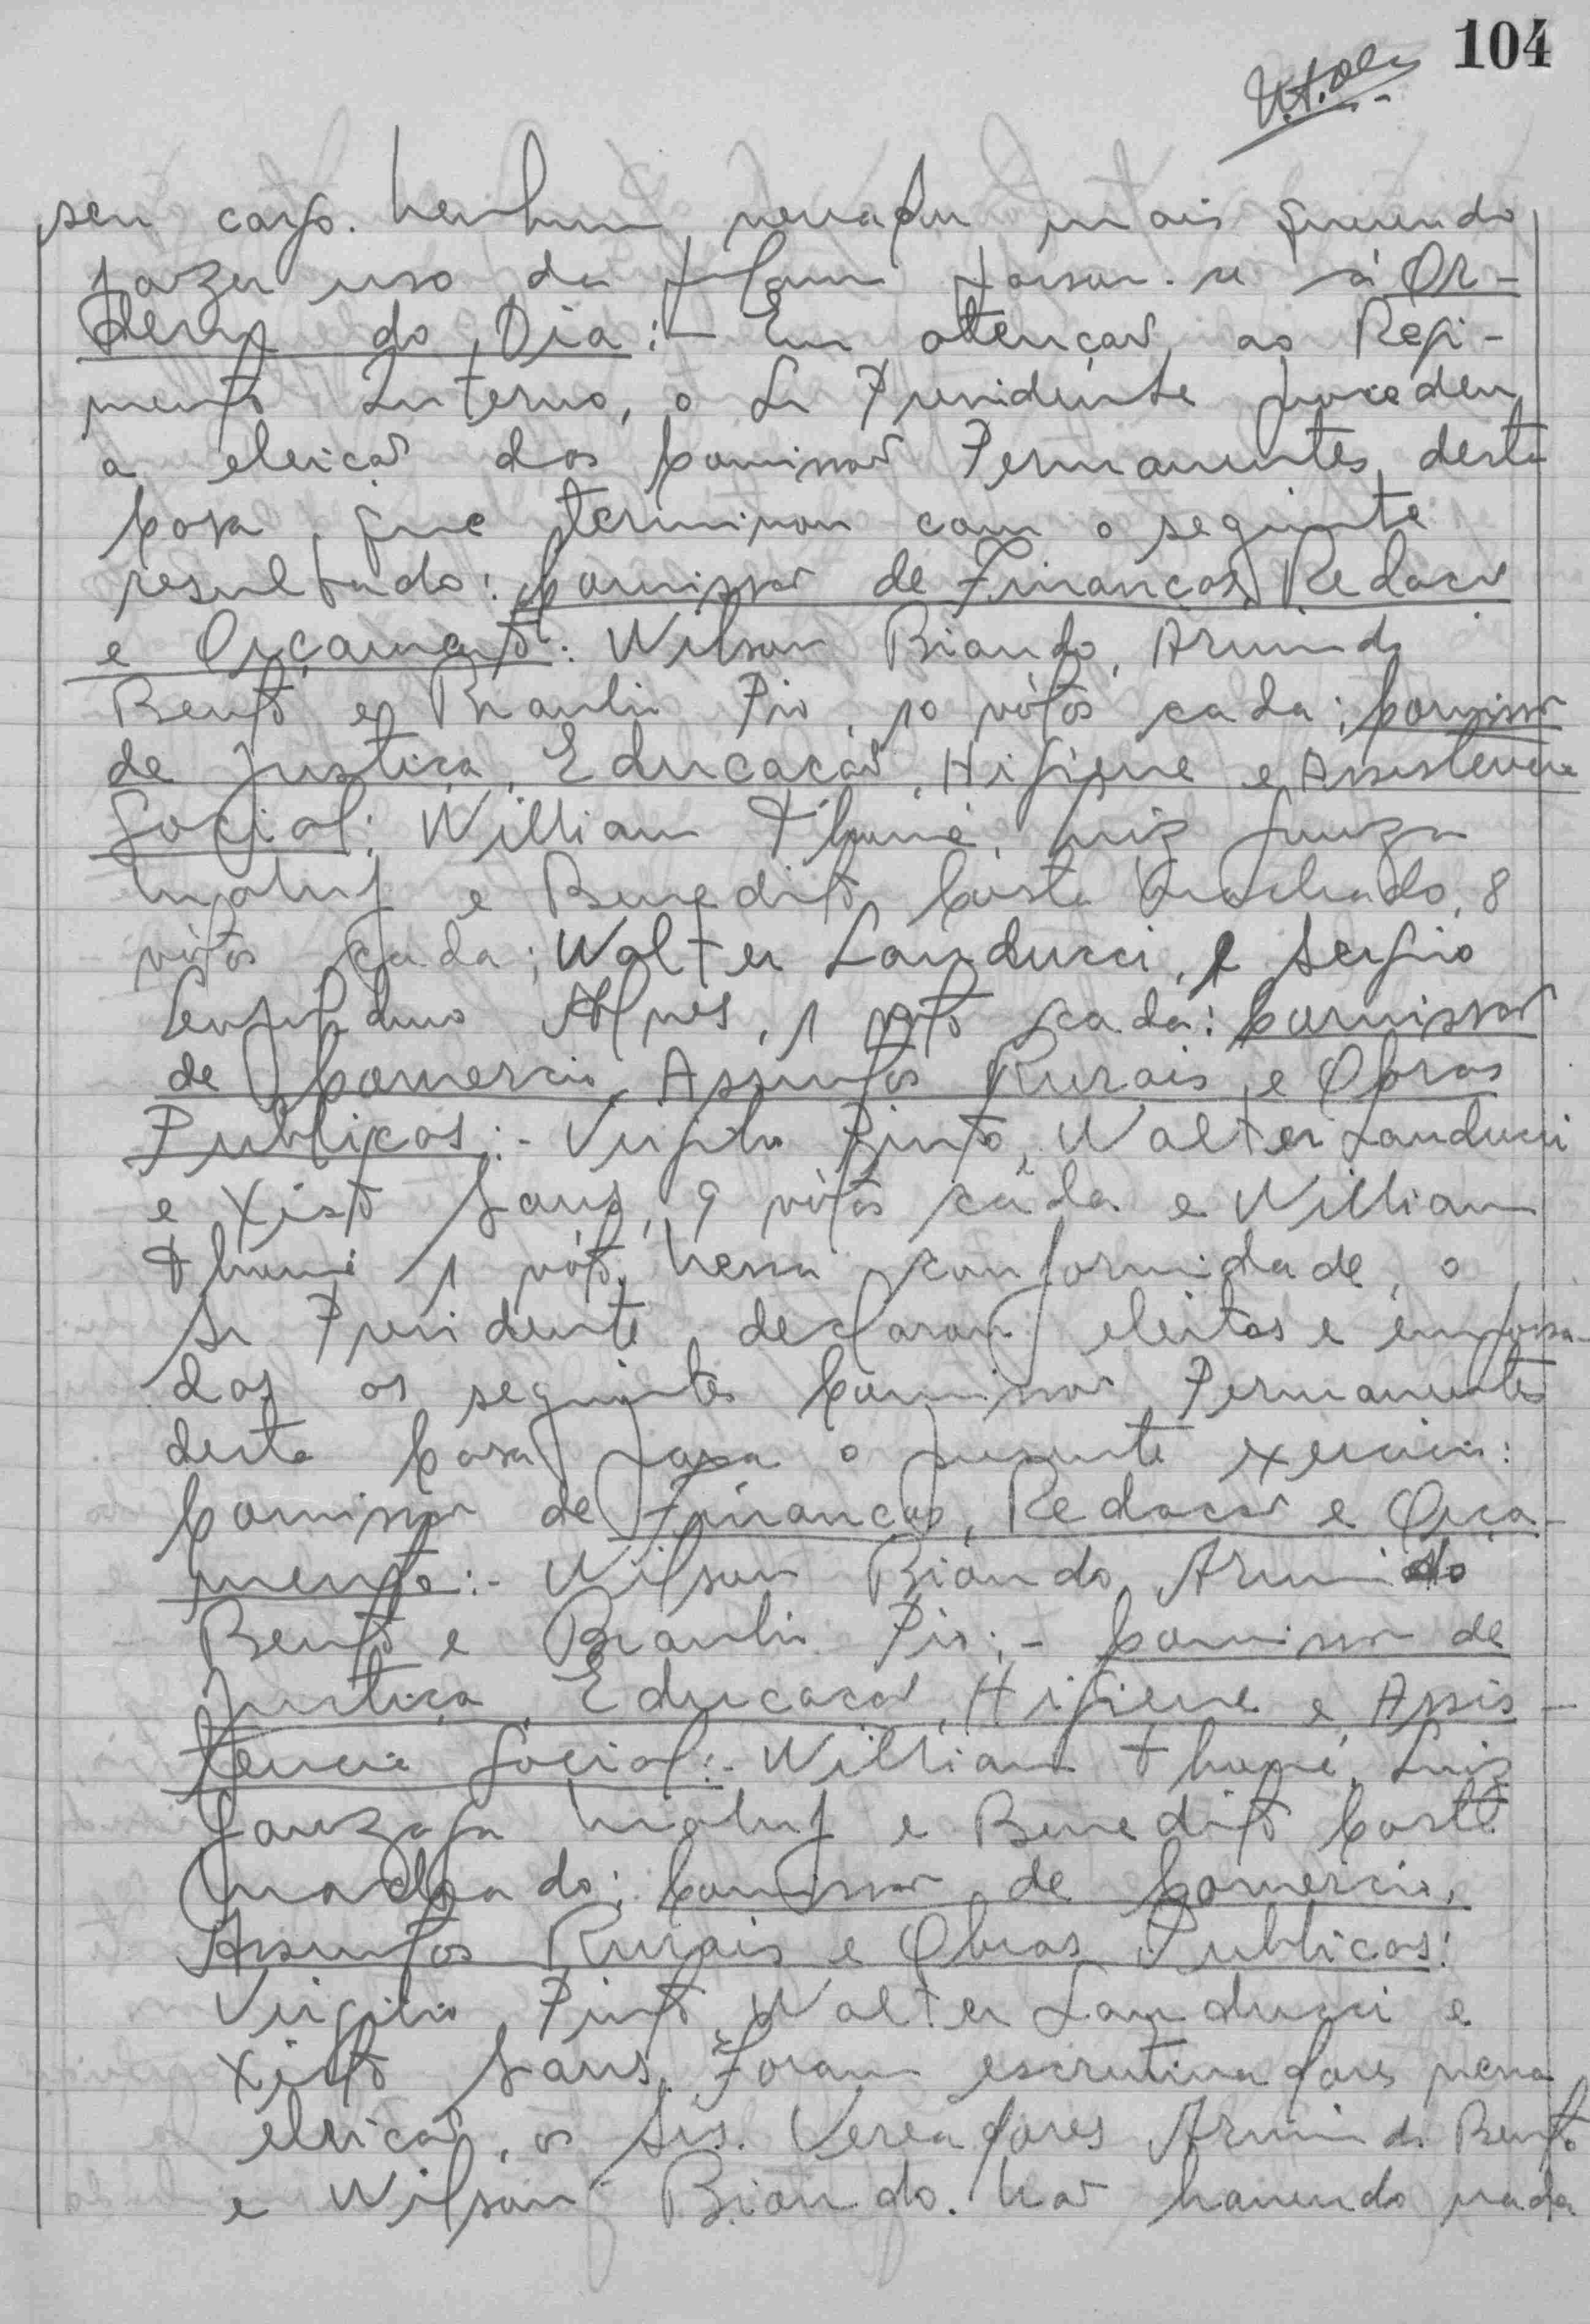 104
seu cargo. Nenhum vereador mais querendo
fazer uso da tribuna passou-se à Or-
dem do Dia:- Em atenção ao Regi-
mento Interno, o Sr Presidente procedeu
a eleição das Comissão Permanentes desta
Casa, que terminou com o seguinte
resultado: Comissão de Finanças, Redação
e Orçamento: Wilson Biando, Armindo
Bento e Braulio Pio, 10 vótos cada; Comissão
de Justiça, Educação, Higiene e Assistencia
Social: Willian Thomé, Luiz Gonzaga
Maluf e Benedito Costa Machado, 8
vótos cada; Walter Landucci, e Sergio
Alves, 1 vóto cada: Comissão
de Comercio, Assuntos Rurais e Obras
Publicas:- Virgilio Pinto, Walter Landucci
e Xisto Sans, 9 vótos cada e Willian
Thomé 1 vóto. Nessa conformidade, o
Sr Presidente, declarou eleitos e empossa-
dos os seguintes Comissão Permanentes
desta Casa para o presente exercicio:
Comissão de Finanças, Redação e Orça-
mento:- Wilson Biando, Armindo
Bento e Braulio Pio;- Comissão de
Justiça, Educação, Higiene e Assis-
tencia Social:- Willian Thomé, Luiz
Gonzaga Maluf e Benedito Costa
Machado; Comissão de Comercio,
Assuntos Rurais e Obras Publicas:
Virgilio Pinto, Walter Landucci e
Xisto Sans. Foram escrutinadores nessa
eleição, os Srs. Vereadores Armindo Bento
e Wilson Biando. Não havendo nada